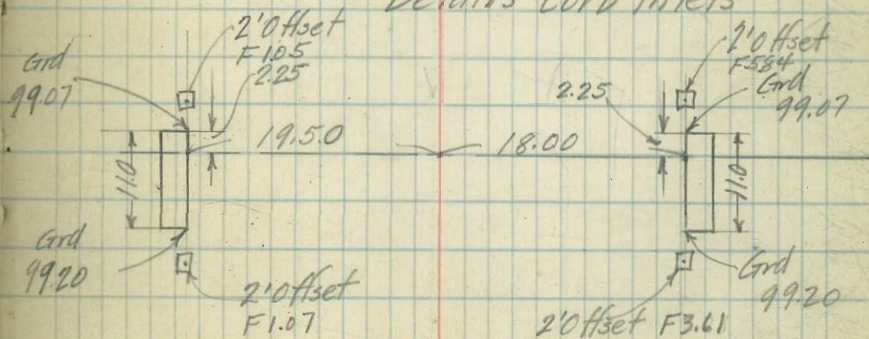 Details Curb Inlets
2' Offset
F 1.05
2.25
Grd
99.07
19.50
11.0
Grd
99.20
2' Offset
F 1.07
2' Offset
F 5.84
Grd
99.07
2.25
18.00
11.0
Grd
99.20
2' Offset F 3.61